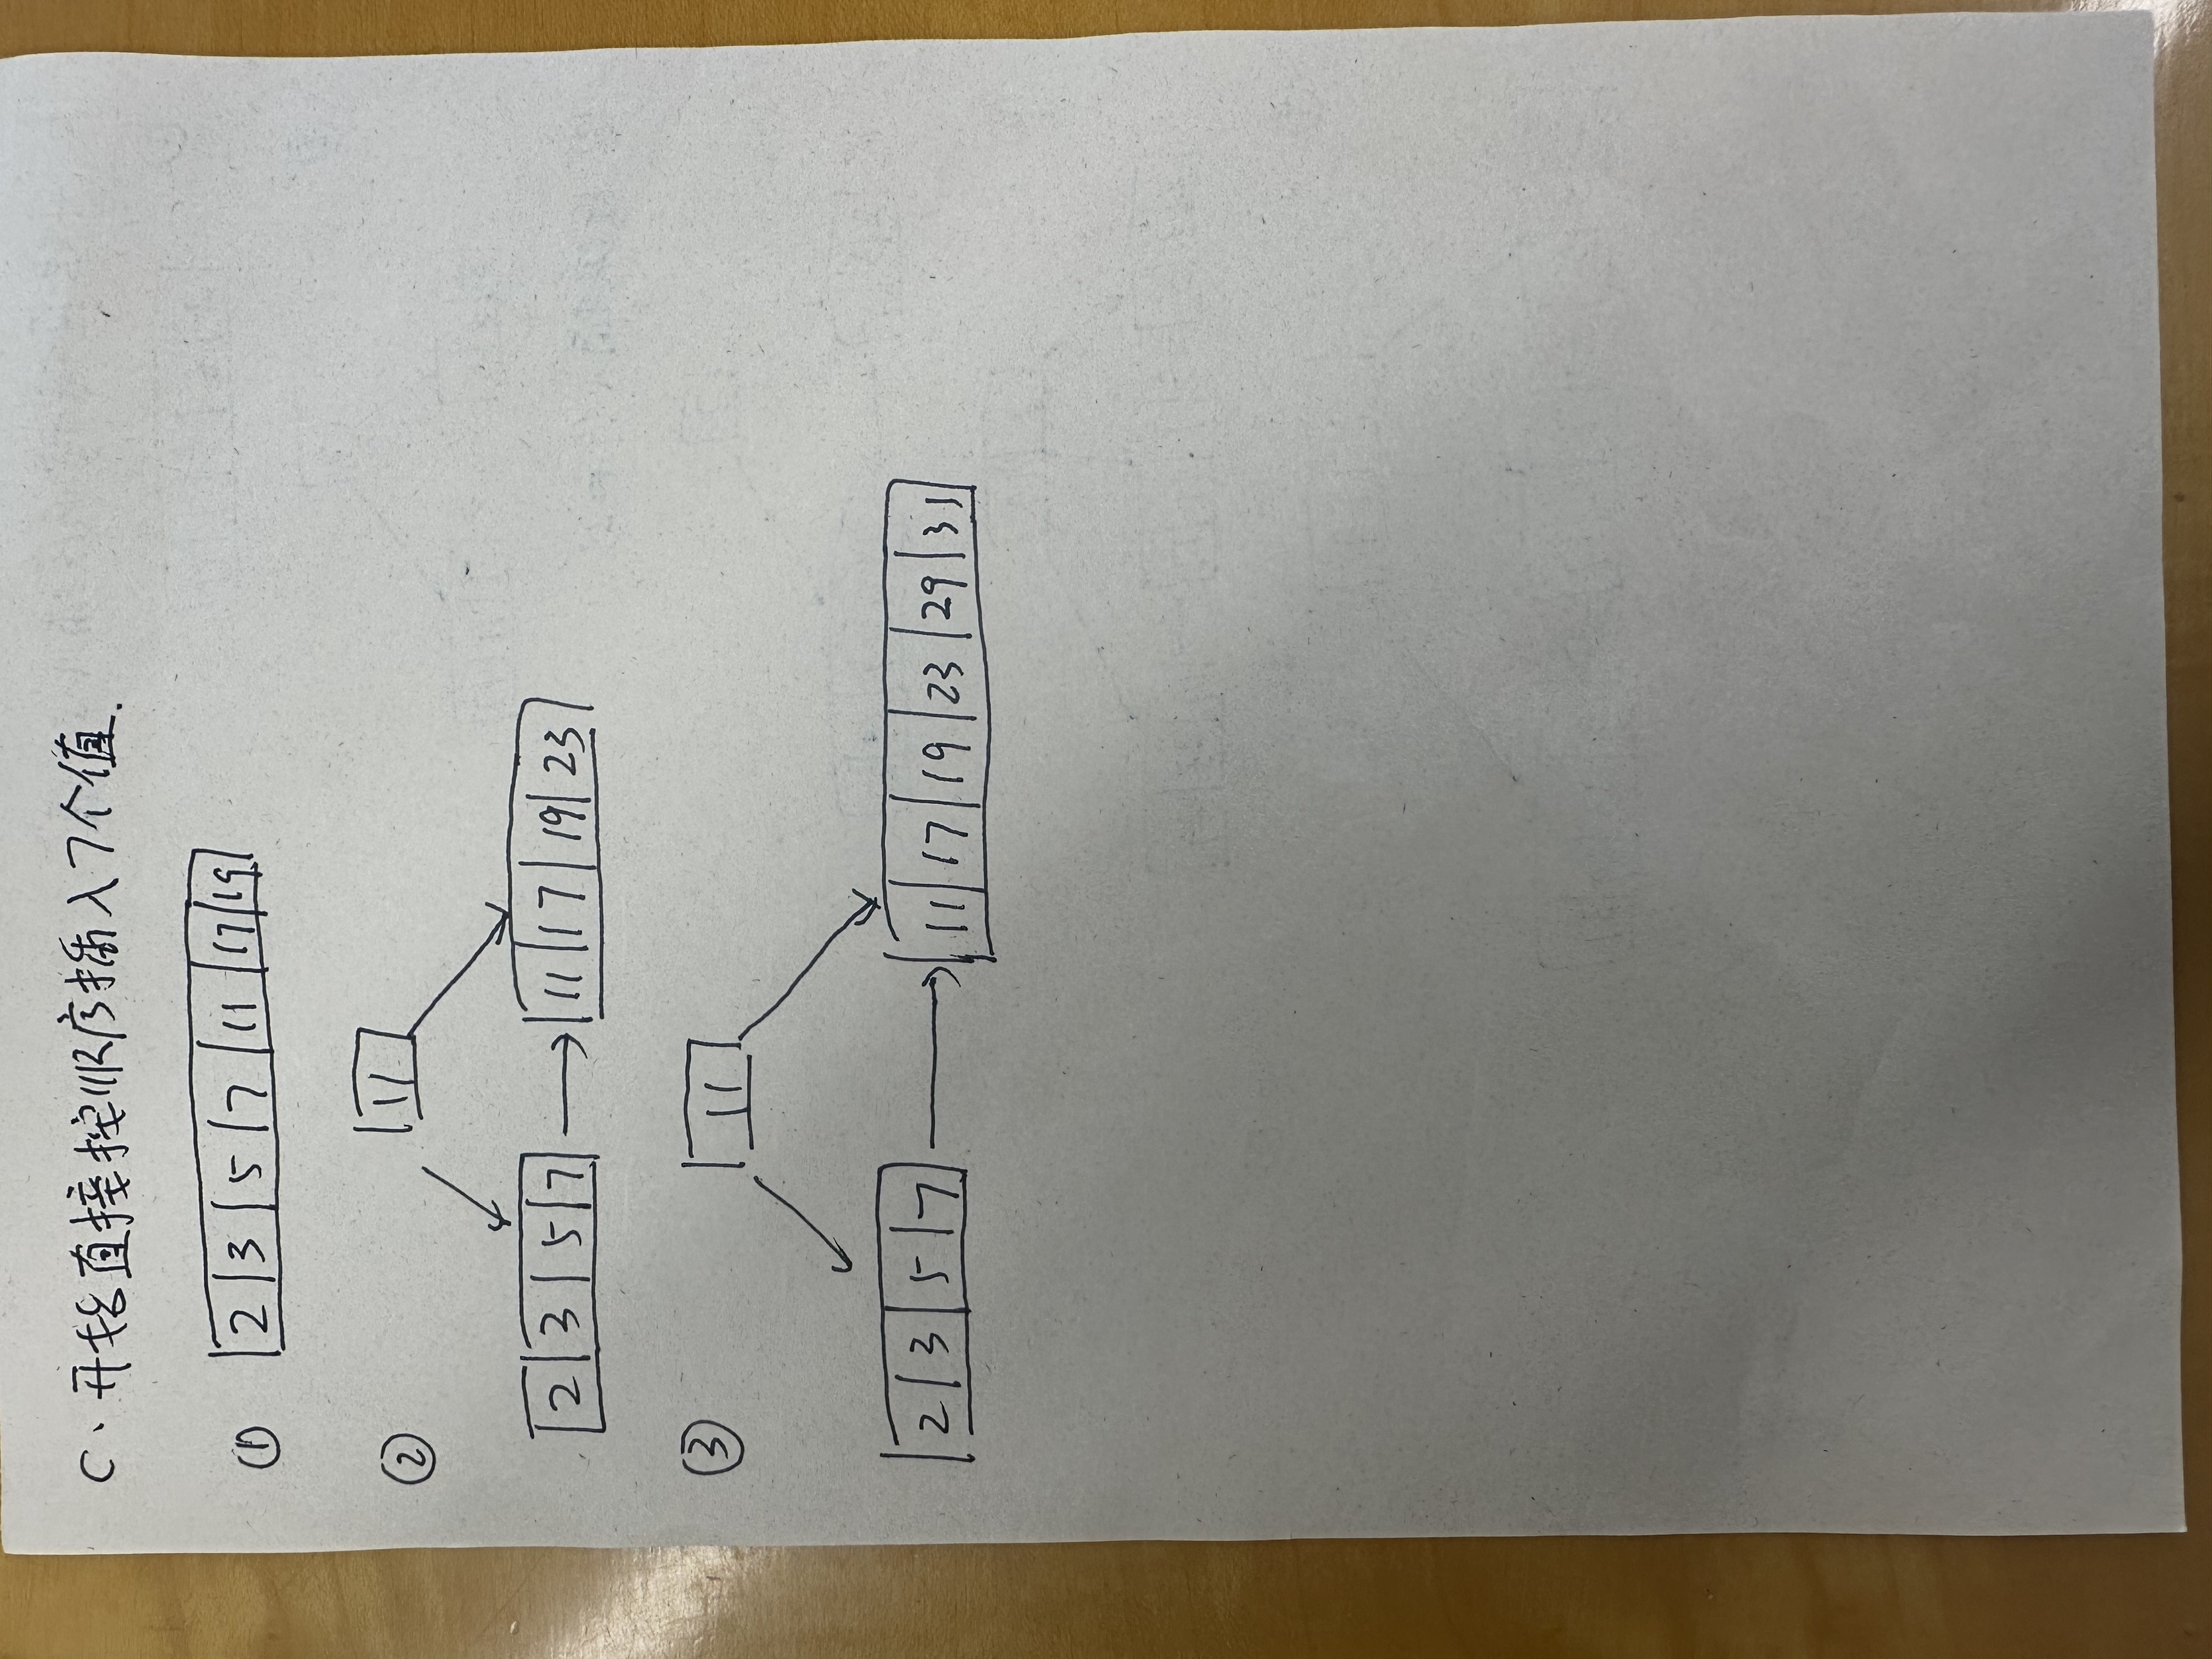 C. 开始直接按顺序插入7个值.
① 2 3 5 7 11 17 19
② 11
2 3 5 7 → 11 17 19 23
③ 11
2 3 5 7 → 11 17 19 23 29 31